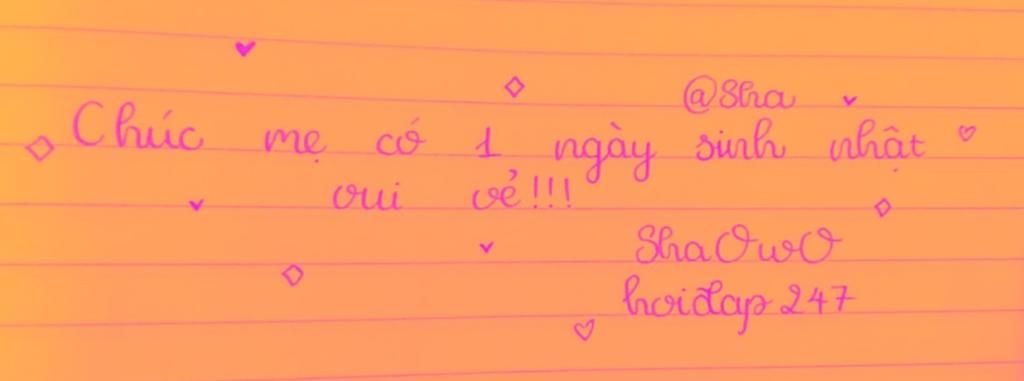 @Sha
Chúc mẹ có 1 ngày sinh nhật
vui vẻ!!!
ShaOwO
hoidap247